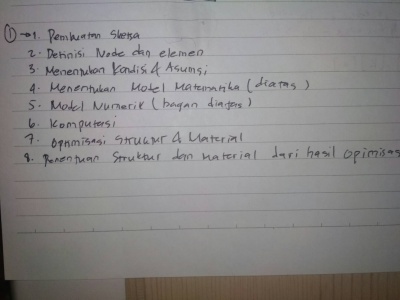 ① → 1. Pembuatan Sketsa
2. Definisi Node dan elemen
3. Menentukan Kondisi & Asumsi
4. Menentukan Model Matematika (diatas)
5. Model Numerik (bagan diatas)
6. Komputasi
7. Optimisasi Struktur & Material
8. Penentuan Struktur dan Material dari hasil Opimisas